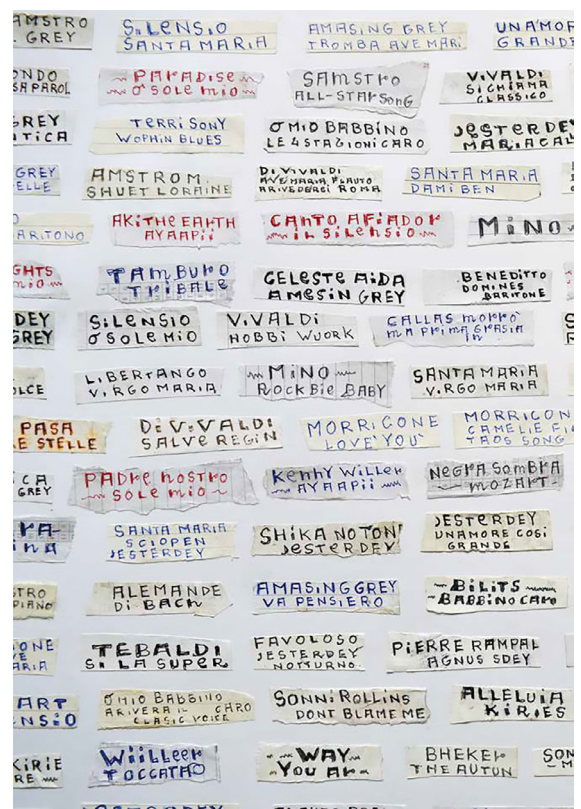 AMSTRO
GREY
SiLENSiO
SANTA MARIA
AMASING GREY
TROMBA AVE MARi
UNAMOR
GRANDE
ONDO
SA PAROL
PARADiSe
O SOLE MiO
SAMSTRO
ALL-STAR SONG
ViVALDi
Si CHIAMA
CLASSICO
GREY
TiCA
TERRi SONY
WOPHIN BLUES
O MIO BABBINO
LE 4 STAGIONI CARO
JESTERDEY
MARIA CAL
GREY
ELLE
AMSTROM
SHUET LORAINE
Di ViVALDi
AVE MARIA FLAUTO
ARIVEDERCI ROMA
SANTA MARIA
DAMI BEN
ARITONO
AKiTHE EAHTH
AYAAPii
CANTO AFiADOR
iL SiLENSiO
MiNO
GHTS
MiO
TAMBURO
TRiBALE
CELESTE AiDA
AMESiN GREY
BENEDITTO
DOMINES
BARITONE
DEY
GREY
SiLENSiO
O SOLE MiO
ViVALDi
HOBBi WUORK
CALLAS MORRO
MA PRIMA GRASIA
IN
OLCE
LiBERTANGO
ViRGO MARiA
MiNO
ROCKBiE BABY
SANTA MARIA
ViRGO MARIA
PASA
E STELLE
Di ViVALDi
SALVE REGiN
MORRICONE
LOVE YOU
MORRICON
CAMELIE FI
TAOS SONG
CA
GREY
PADRE NOSTRO
SOLE MiO
KENHY WILLEH
AYAAPii
NEGRA SOMBRA
MOZART
RA
INA
SANTA MARIA
SCIOPEN
JESTERDEY
SHIKA NO TONI
JESTERDEY
JESTERDEY
UNAMORE COSI
GRANDE
STRO
PiANO
ALEMANDE
Di BACH
AMASING GREY
VA PENSIERO
BiLiTS
BABBINO CARO
ONE
VE
ARIA
TEBALDi
Si LA SUPER
FAVOLOSO
JESTERDEY
NOTTURNO
PiERRE RAMPAL
AGNUS SDEY
ART
ENSiO
O MIO BABBINO
ARIVERA CARO
CLASIC VOICE
SONNi ROLLiNS
DONT BLAME ME
ALLELUiA
KiRiES
KiRIE
RE
WiiLLEEH
TOCCATAO
WAY
YOU AR
BHEKEH
THE AUTUN
SON